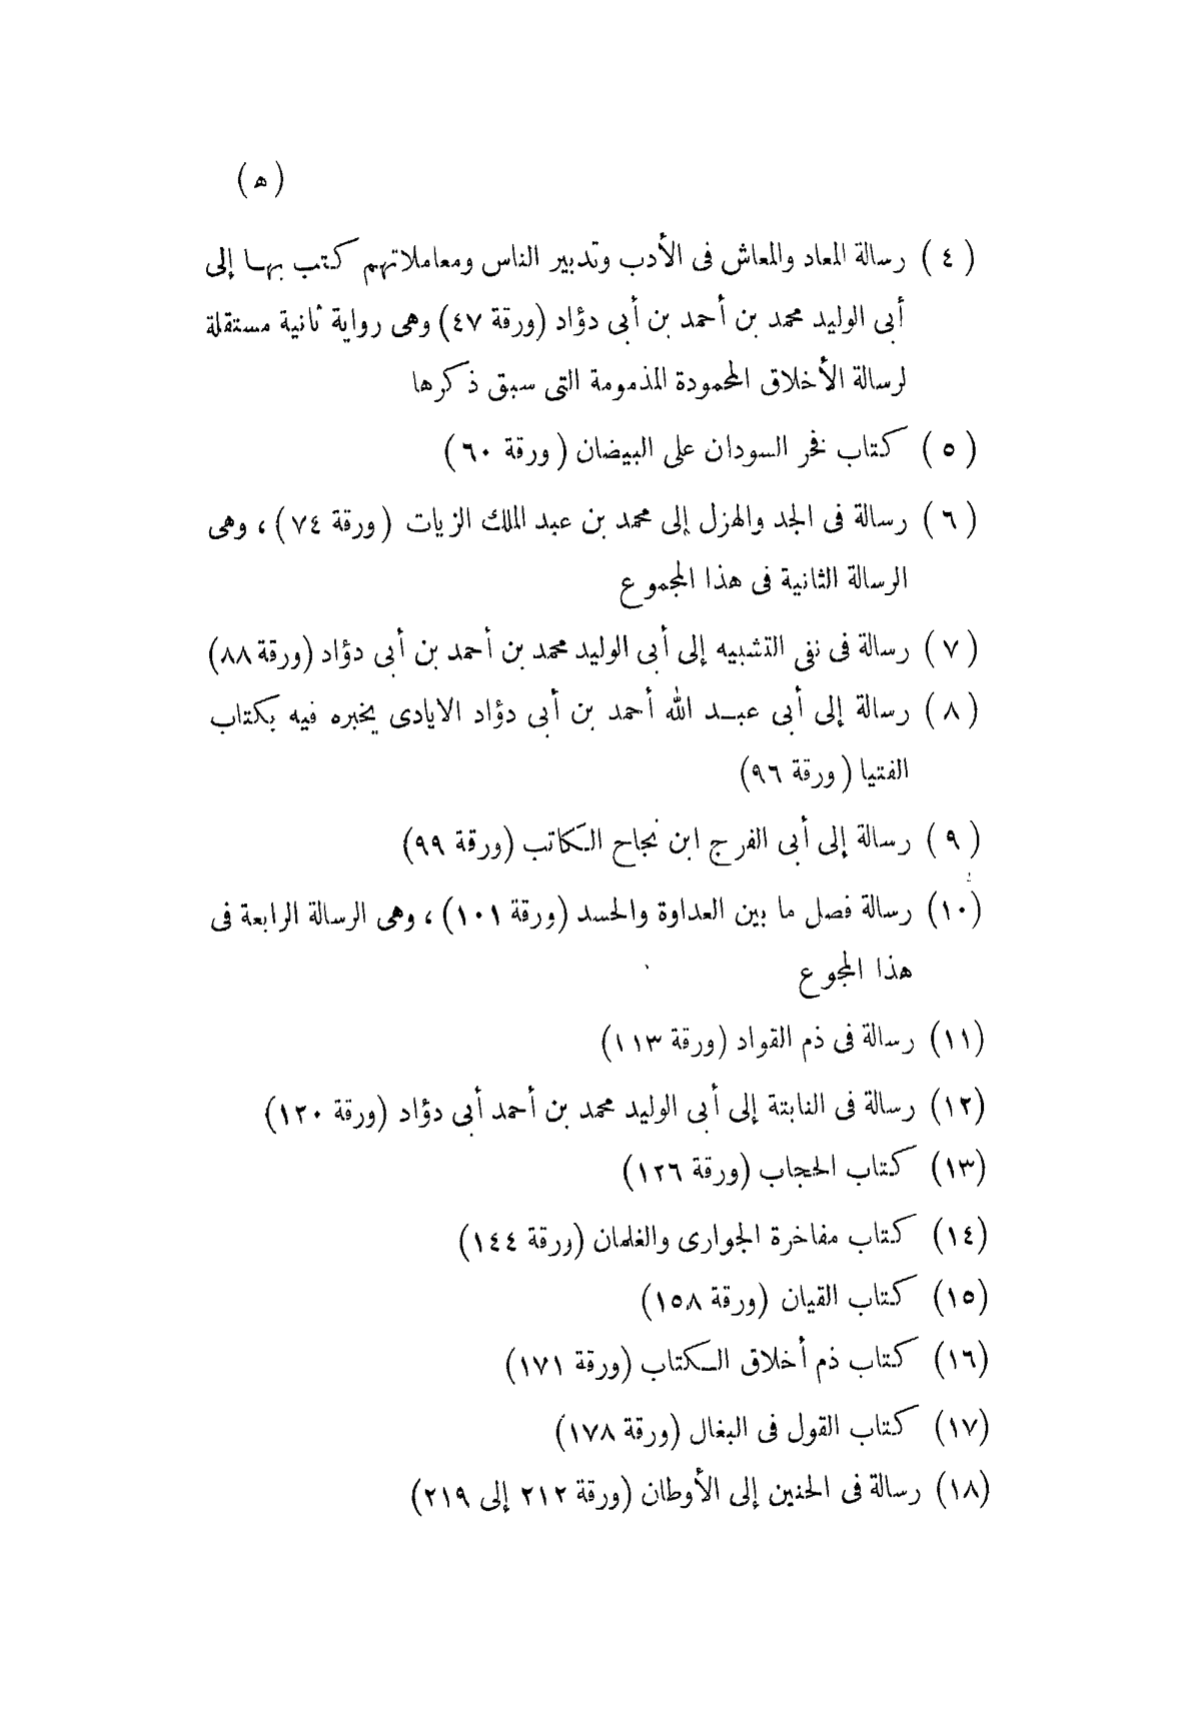 (ه)
(٤) رسالة المعاد والمعاش فى الأدب وتدبير الناس ومعاملاتهم كتب بها إلى
أبى الوليد محمد بن أحمد بن أبى دؤاد (ورقة ٤٧) وهى رواية ثانية مستقلة
لرسالة الأخلاق المحمودة المذمومة التى سبق ذكرها
(٥) كتاب فخر السودان على البيضان (ورقة ٦٠)
(٦) رسالة فى الجد والهزل إلى محمد بن عبد الملك الزيات (ورقة ٧٤)، وهى
الرسالة الثانية فى هذا المجموع
(٧) رسالة فى نفى التشبيه إلى أبى الوليد محمد بن أحمد بن أبى دؤاد (ورقة ٨٨)
(٨) رسالة إلى أبى عبد الله أحمد بن أبى دؤاد الايادى يخبره فيه بكتاب
الفتيا (ورقة ٩٦)
(٩) رسالة إلى أبى الفرج ابن نجاح الكاتب (ورقة ٩٩)
(١٠) رسالة فصل ما بين العداوة والحسد (ورقة ١٠١)، وهى الرسالة الرابعة فى
هذا المجوع
(١١) رسالة فى ذم القواد (ورقة ١١٣)
(١٢) رسالة فى النابتة إلى أبى الوليد محمد بن أحمد أبى دؤاد (ورقة ١٢٠)
(١٣) كتاب الحجاب (ورقة ١٢٦)
(١٤) كتاب مفاخرة الجوارى والغلمان (ورقة ١٤٤)
(١٥) كتاب القيان (ورقة ١٥٨)
(١٦) كتاب ذم أخلاق الكتاب (ورقة ١٧١)
(١٧) كتاب القول فى البغال (ورقة ١٧٨)
(١٨) رسالة فى الحنين إلى الأوطان (ورقة ٢١٢ إلى ٢١٩)